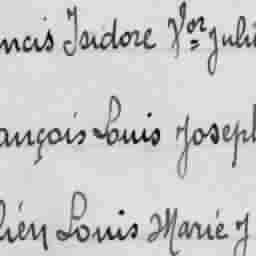 ncis Isidore Vor Juli
ançois Louis Joseph
lién Louis Marié J